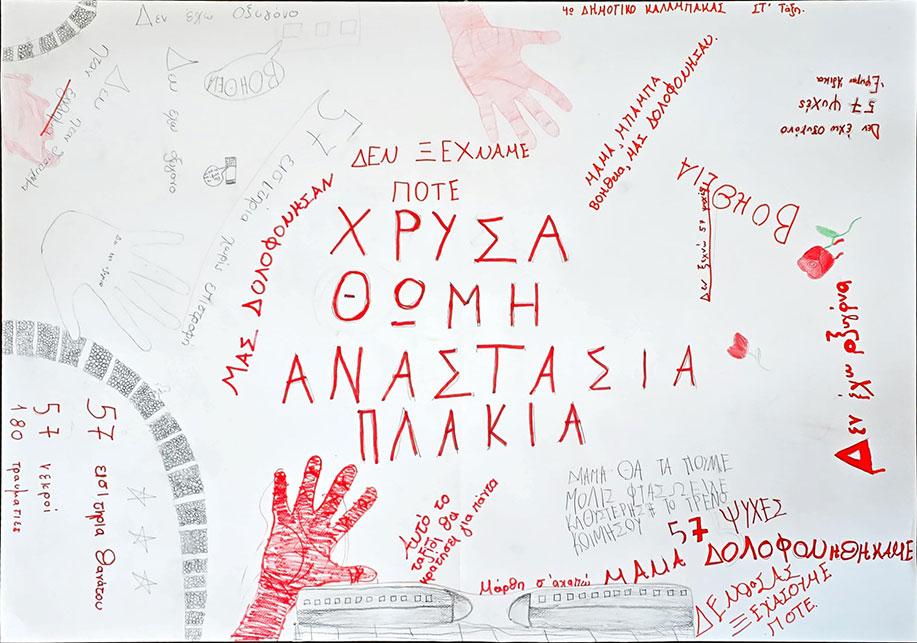 4ο ΔΗΜΟΤΙΚΟ ΚΑΛΑΜΠΑΚΑΣ ΣΤ΄ Τάξη.
Δεν έχω Οξυγόνο
ΒΟΗΘΕΙΑ
Δεν έχω οξυγόνο
57 εισιτήρια χωρίς επιστροφή
ΜΑΣ ΔΟΛΟΦΟΝΗΣΑΝ
ΔΕΝ ΞΕΧΝΑΜΕ
ΠΟΤΕ
ΧΡΥΣΑ
ΘΩΜΗ
ΑΝΑΣΤΑΣΙΑ
ΠΛΑΚΙΑ
ΜΑΜΑ, ΜΠΑΜΠΑ
ΒΟΗΘΕΙΑ, ΜΑΣ ΔΟΛΟΦΟΝΗΣΑΝ.
Δεν έχω οξυγόνο
57 ψυχές
Έφυγαν Άδικα
ΒΟΗΘΕΙΑ
Δεν ξεχνώ 57 ψυχές
Δεν έχω οξυγόνο
57 εισιτήρια θανάτου
57 νεκροί
180 τραυματίες
Αυτό το
ταξίδι θα
κρατήσει για πάντα
Μάρθη σ'αγαπώ
ΜΑΜΑ ΘΑ ΤΑ ΠΟΥΜΕ
ΜΟΛΙΣ ΦΤΑΣΩ
ΤΟ ΤΡΕΝΟ
ΚΟΙΜΗΣΟΥ
57 ΨΥΧΕΣ
ΜΑΜΑ ΔΟΛΟΦΟΝΗΘΗΚΑΜΕ
ΔΕΝ ΘΑ ΣΑΣ
ΞΕΧΑΣΟΥΜΕ
ΠΟΤΕ.